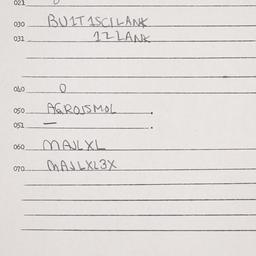 021
030 BUIT1SCILANK
031 1ZLANK
040 0
050 AGROJSMOL.
051 — .
060 MAJLXL
070 MAJLXL3X